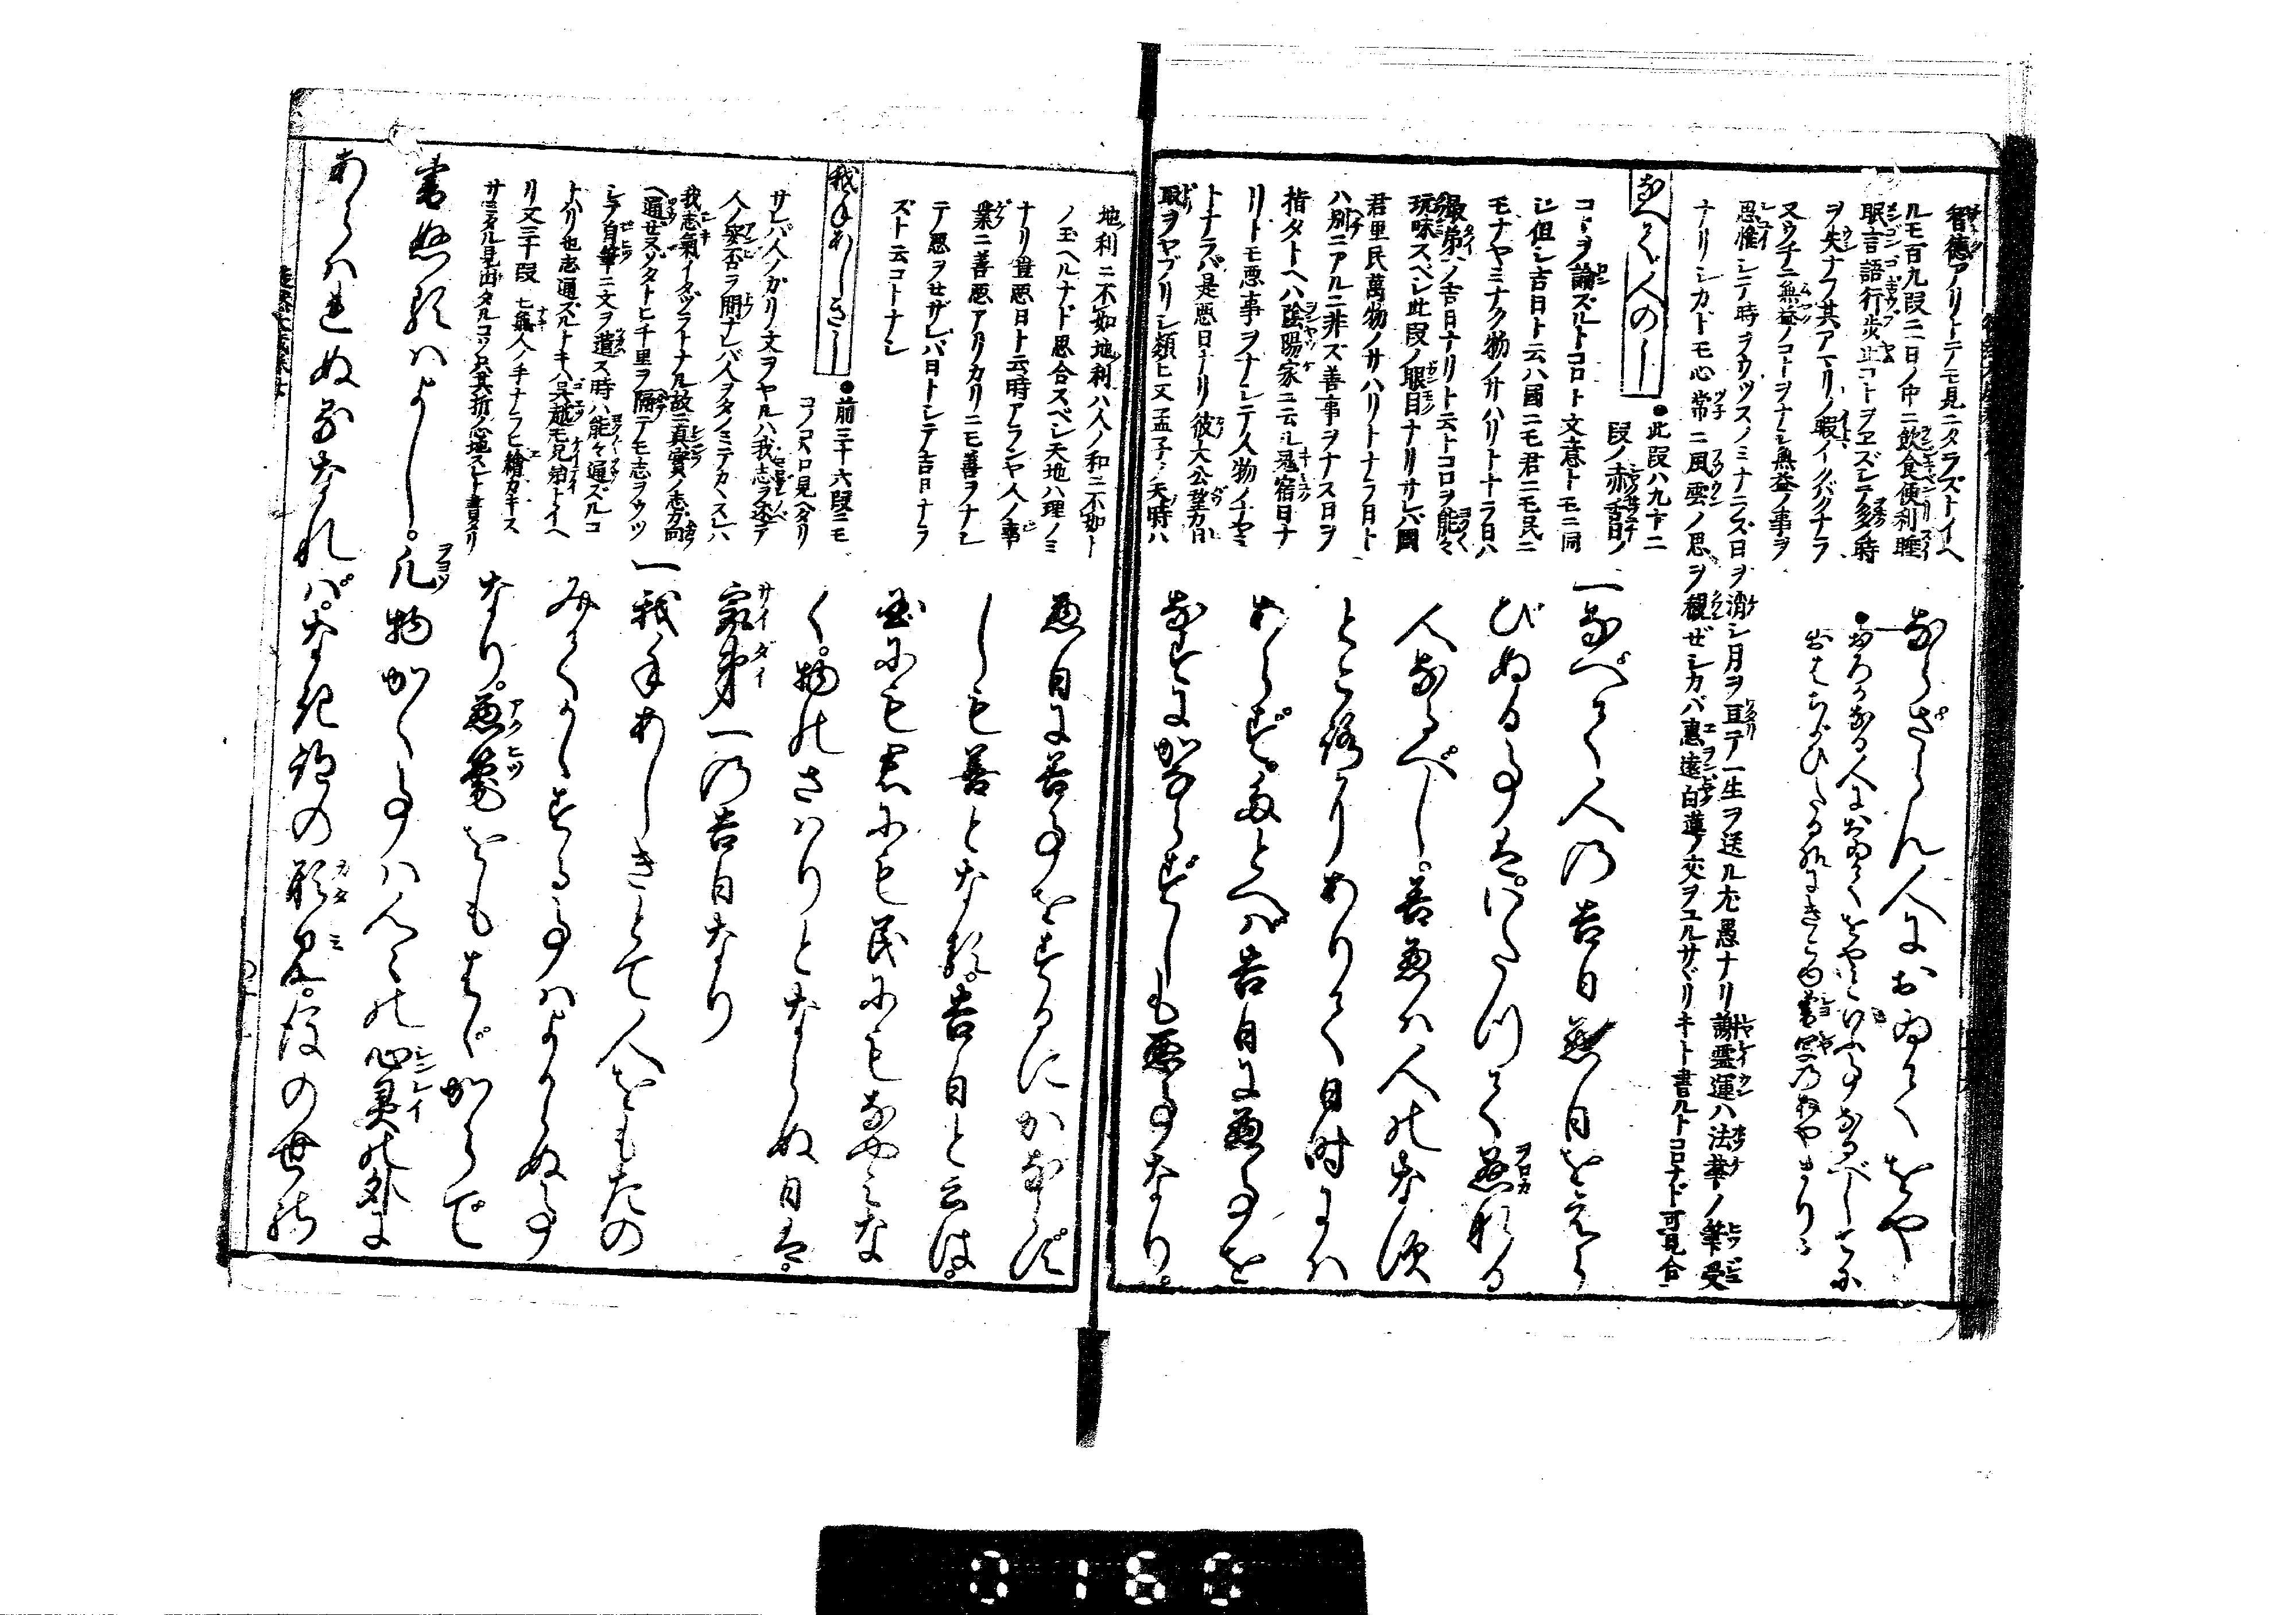 智徳アリトテモ見ニタラズトイヘ
ルモ百九段ニ一日ノ中ニ飲食便利睡
眠言語行歩止コトヲヱズシテ多ノ時
ヲ失ナフ其アマリノ暇イクバクナラ
ヌウチニ無益ノコトヲナシ無益ノ事ヲ
思惟シテ時ヲウツスノミナラズ日ヲ消シ月ヲ亘テ一生ヲ送ル尤愚ナリ謝霊運ハ法華ノ筆受
ナリシカドモ心常ニ風雲ノ思ヲ観ゼシカバ恵遠白蓮ノ交ヲユルサヾリキト書ルトコロナド可見合
ならざらん人におゐてをや
●おろかなる人におゐてをや
なべて人の
●此段ハ九十一
段ノ赤舌日ノ
コトヲ論ズルトコロト文意トモニ同
シ但シ吉日ト云ハ國ニモ君ニモ民ニ
モナヤミナク物ノサハリトナラヌ日ハ
最第一ノ吉日ナリト云トコロヲ能々
玩味スベシ此段ノ眼目ナリサレバ國
君里民萬物ノサハリトナラヌ日ト
ハ別ニアルニ非ズ善事ヲナス日ヲ
指タトヘハ陰陽家ニ云シ鬼宿日ナ
リトモ悪事ヲナシテ人物ノナヤミ
トナラバ是悪日ナリ彼太公望カ日
取ヲヤブリシ類ヒ又孟子ニ天時ハ
一なべて人の吉日悪日をえら
びぬる事は。いたつて愚なる
人なるべし。善悪は人のなす
ところにありて日時には
あらず。たとへば吉日に悪事を
なすにかならずしも悪事なり。
地利ニ不如地利ハ人ノ和ニ不如ト
ノ玉ヘルナド思合スベシ天地ハ理ノミ
ナリ豈悪日ト云時アランヤ人ノ事
業ニ善悪アリカリニモ善ヲナシ
テ悪ヲせザレバ日トシテ吉日ナラ
ズト云コトナシ
悪日に善事をするにかならず
しも善となる。吉日と云は。
国にも君にも民にもなやみな
く。物のさはりとならぬ日は。
最第一の吉日なり
我手あしき
●前三十六段ニモ
コノコヽロ見ヘタリ
サレバ人ノガリ文ヲヤルハ我志ヲ述テ
人ノ安否ヲ問ナレバ人ヲタノミテカヽスレハ
我志氣イタヅラトナル故ニ真實ノ志
ヘ通せズタトヒ千里ヲ隔テモ志ヲウツ
シテ自筆ニ文ヲ遣ス時ハ能々通ズルコ
トハリ也志通ズルトキハ呉越モ兄弟トイヘ
リ又三十段ニ無人ノ手ナラヒ繪カキス
サミタル見出タルコソ只其折ノ心地スレト書タリ
一我手あしきとて人をもたの
みてかゝする事はよからぬ事
なり。悪筆をもはゞからで
書ぬるはよし。凡物かく事は人々の心霊の外に
あらはれぬるなれば。なき跡の形見。後の世の